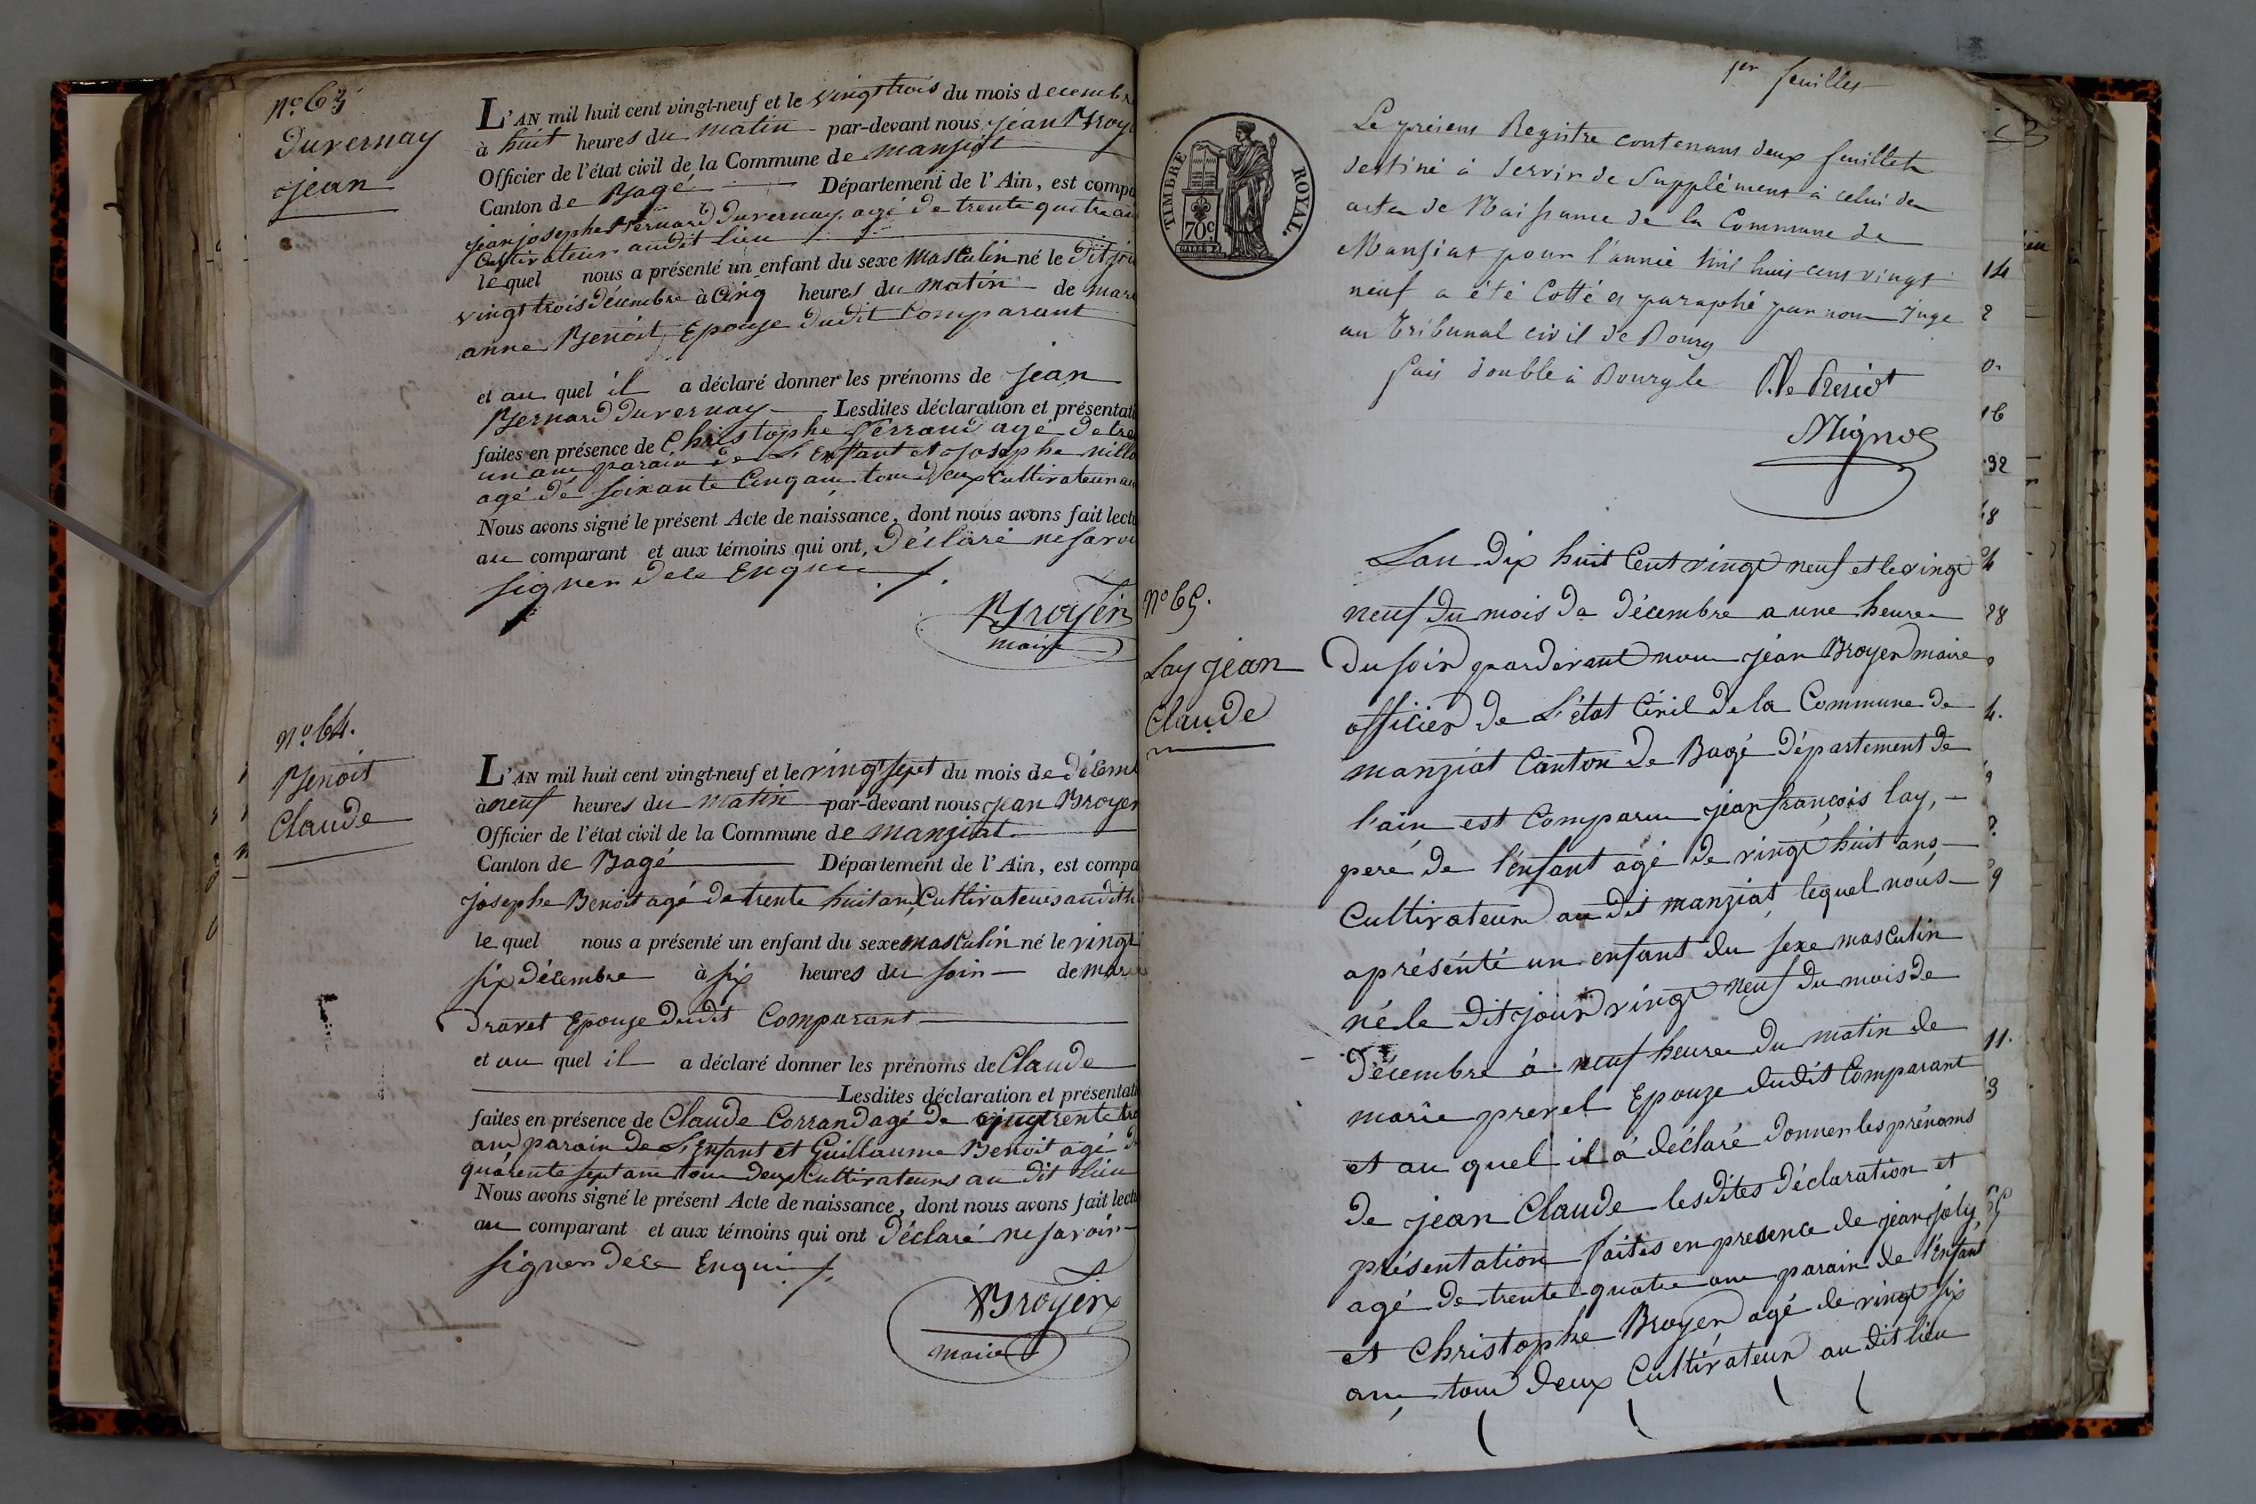 N.º 63
Duvernay
jean
L'AN mil huit cent vingt-neuf et le vingt trois du mois decembre
à huit heures du matin par-devant nous jean Broye
Officier de l'état civil de la Commune de manziat
Canton de Bagé Département de l'Ain, est compa
jean josephe Bernard Duvernay agé de trente quatre an
Cultivateur audit lieu
lequel nous a présenté un enfant du sexe Masculin né le Dit jou
vingt trois décembre à Cinq heures du matin de mar
anne Benoit Epouze dudit Comparant
et au quel il a déclaré donner les prénoms de jean
Bernard Duvernay Lesdites déclaration et présentati
faites en présence de Christophe Ferrand agé de tre
un ans parain de L'Enfant et josephe
agé de soixante Cinq ans tous deux Cultivateur au
Nous avons signé le présent Acte de naissance, dont nous avons fait lectu
au comparant et aux témoins qui ont, Déclaré ne savoi
signer de ce Enquis
Broyer
maire
N.º 64.
Benoit
Claude
L'AN mil huit cent vingt-neuf et le vingt sept du mois de décem
à neuf heures du matin par-devant nous jean Broyer
Officier de l'état civil de la Commune de manziat
Canton de Bagé Département de l'Ain, est compa
josephe Benoit agé de trente huit ans Cultivateur audit li
le quel nous a présenté un enfant du sexe masculin né le vingt
six décembre à six heures du soir de mari
Dravet Epouze dudit Comparant
et au quel il a déclaré donner les prénoms de Claude
Lesdites déclaration et présentati
faites en présence de Claude Corrand agé de trente tro
ans parain de L'Enfant et Guillaume Benoit agé d
quarente sept ans tous deux Cultivateurs au dit lieu
Nous avons signé le présent Acte de naissance, dont nous avons fait lectu
au comparant et aux témoins qui ont Déclaré ne savoir
signer de ce Enquis
Broyer
maire
1er feuillet
TIMBRE ROYAL.
70c
Le présent Registre contenant deux feuillets
destiné à servir de Supplément à celui des
actes de Naissance de la Commune de
Manziat pour l'année Mil huit cent vingt
neuf a été Cotté et paraphé par nous Juge
au Tribunal civil de Bourg
fait double à Bourg le
Mignot
N.º 65.
Lay jean
Claude
L'an Dix huit Cent vingt neuf et le vingt
neuf du mois de Décembre a une heure
du soir pardevant nous jean Broyer maire
officier de L'état Civil de la Commune de
manziat Canton de Bagé Département de
l'ain est Comparu jean françois lay,
peré de l'enfant agé de vingt huit ans
Cultivateur au dit manziat lequel nous
a présenté un enfant du sexe masculin
né le dit jour vingt neuf du mois de
Décembre à neuf heures du matin de
marie prevel Epouze dudit Comparant
et au quel il à déclaré donner les prénoms
de jean Claude lesdites déclaration et
présentation faites en presence de jean joly
agé de trente quatre ans parain de l'Enfant
et Christophe Broyer agé de vingt six
ans, tous deux Cultivateur au dit lieu
14
2
0.
16
32
11.